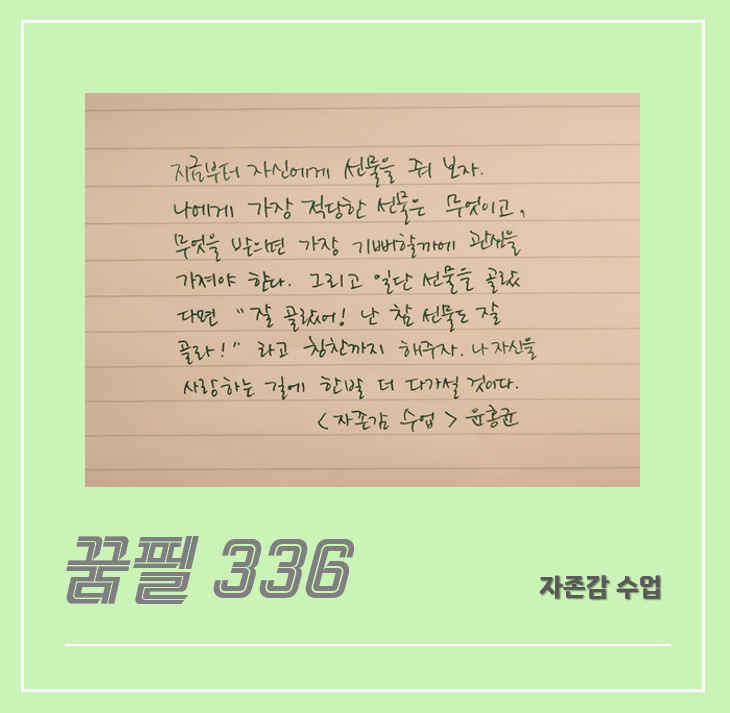 지금부터 자신에게 선물을 줘 보자.
나에게 가장 적당한 선물은 무엇이고,
무엇을 받으면 가장 기뻐할까에 관심을
가져야 한다. 그리고 일단 선물을 골랐
다면 "잘 골랐어! 난 참 선물도 잘
골라!" 라고 칭찬까지 해주자. 나 자신을
사랑하는 길에 한발 더 다가설 것이다.
<자존감 수업> 윤홍균
꿈필 336
자존감 수업